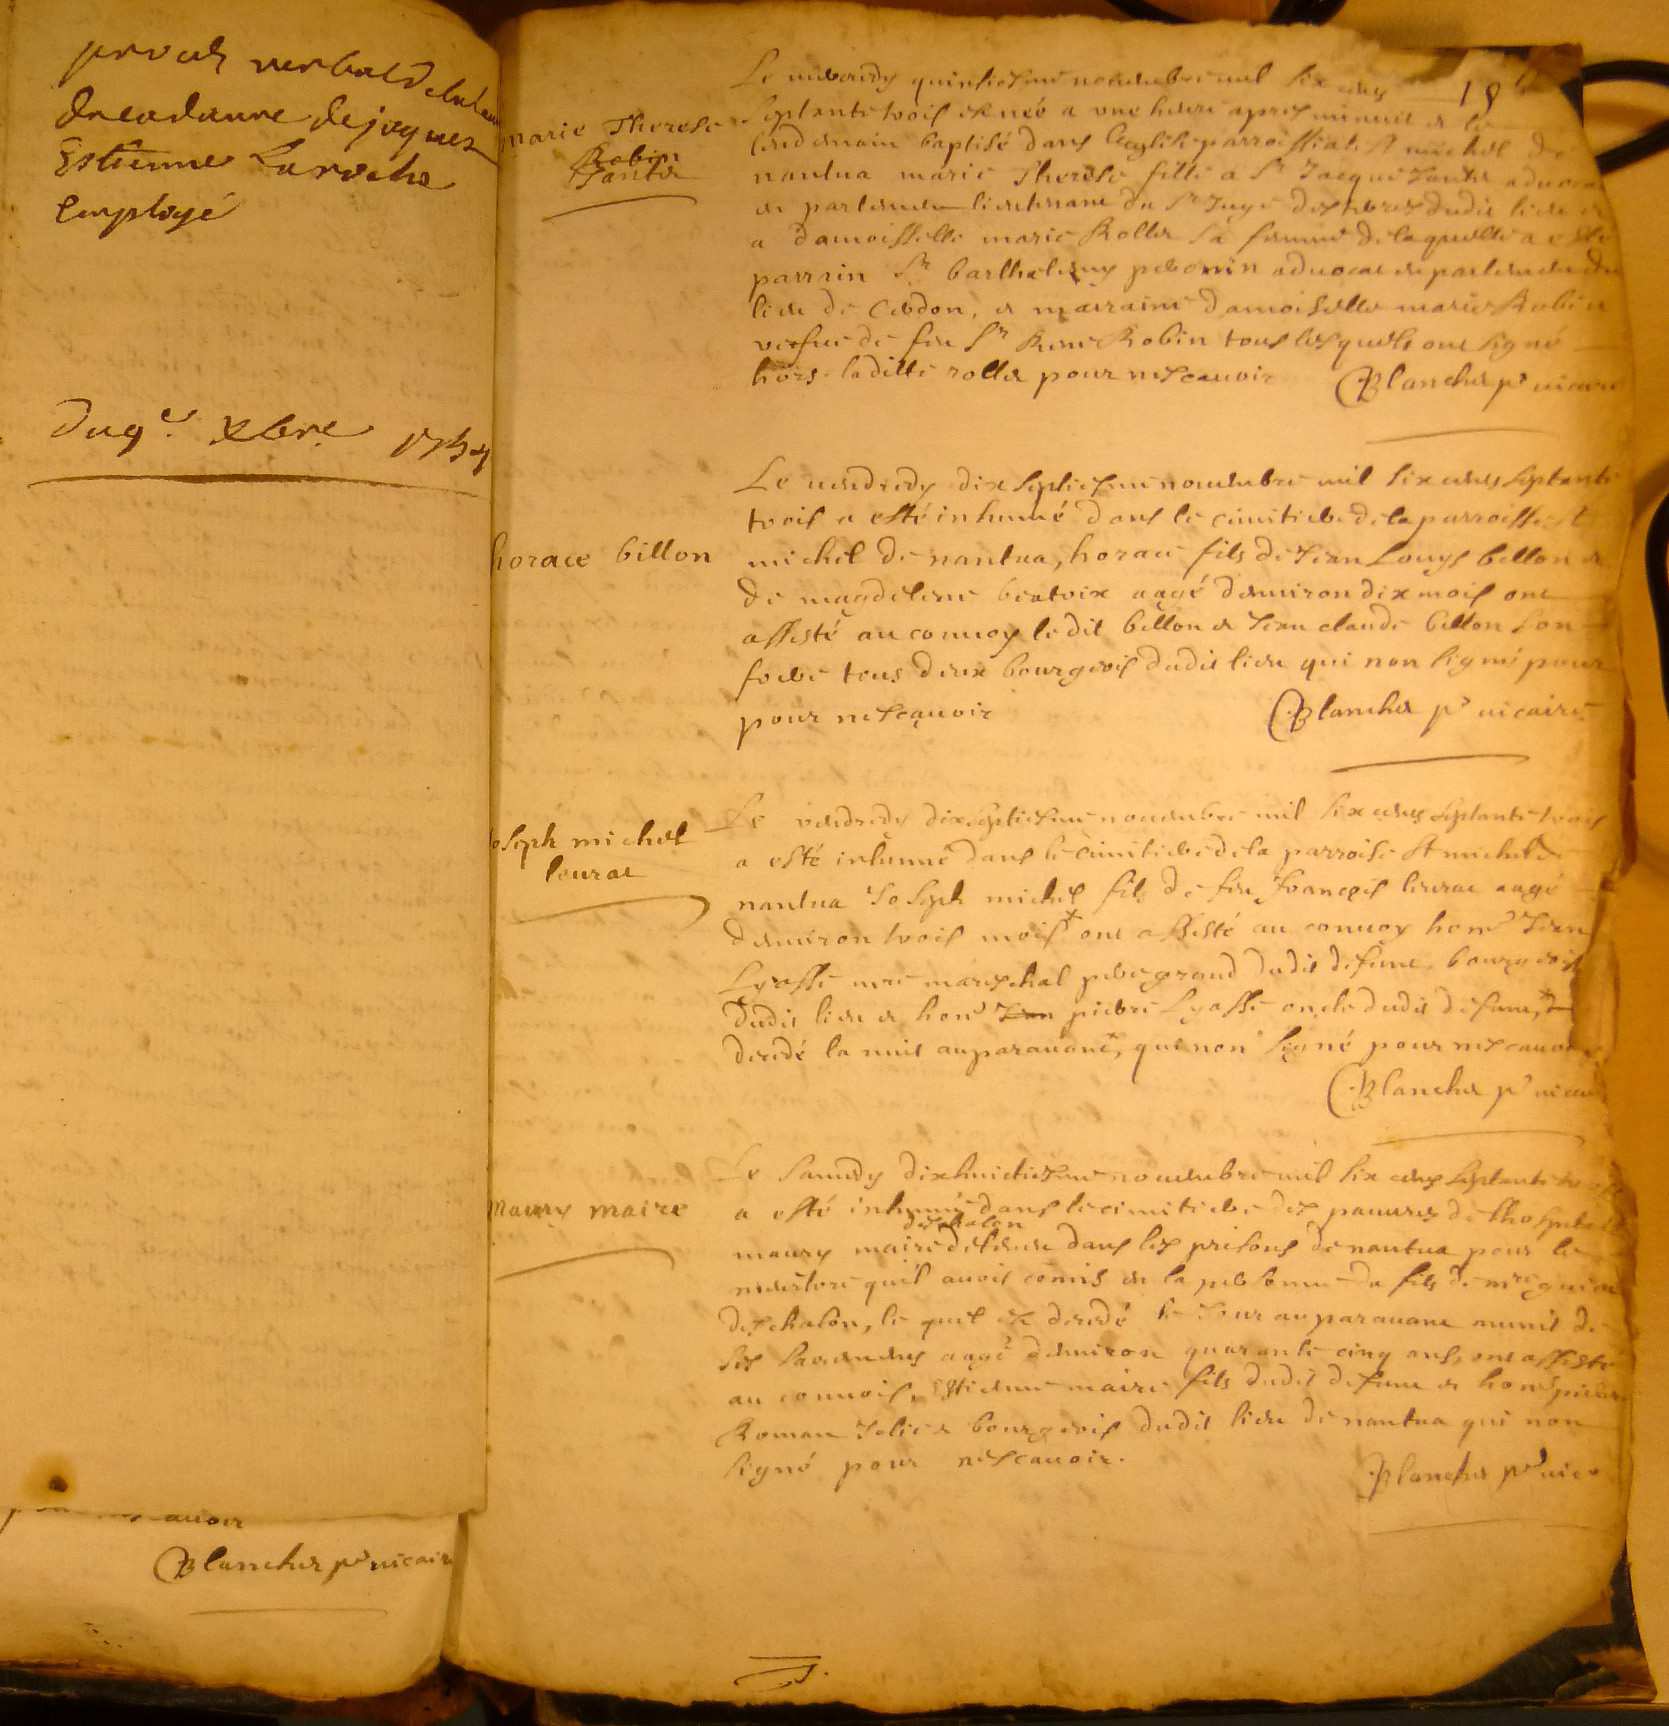 proces verbal de
du cadavre de jaques
Estienne Laroche
Employé
Du 9e. Xbre 1754
avoir
Blanchet pr vicaire
18
marie Therese
Robin
Jantet
Le mecredy quinsiesme novembre mil six cens
septante trois est née a une heure apres minuit et le
lendemain baptisé dans leglise parroissiale St michel de
nantua marie Therese fille a Sr Jacque Jantet advocat
en parlement lieutenant du Sr Juge des terres dudit lieu et
a damoisselle marie Rollet sa femme de laquelle a esté
parrain Sr barthelemy advocat en parlement du
lieu de Cerdon, et marraine damoiselle marie Robin
vefue de feu Sr Rene Robin tous lesquels ont signé
hors laditte rollet pour ne scavoir Blanchet pr vicaire
horace billon
Le vendredy dix septiesme novembre mil six cens septante
trois a esté inhumé dans le cimitiere de la parroisse St
michel de nantua, horace fils de Jean Louys billon et
de magdelene beatrix aagé denuiron dix mois ont
assisté au conuoy le dit billon et Jean claude billon son
frere tous deux bourgeois dudit lieu qui non signé pour
pour ne scauoir Blanchet pr vicaire
Joseph michel
leurat
Le vendredy dixseptiesme novembre mil six cens septante trois
a esté inhumé dans le cimitiere de la parroise St michel de
nantua Joseph michel fils de feu francois leurat aagé
denuiron trois mois ont assisté au conuoy honn Jean
Lyasse mre mareschal pere grand dudit defunt, bourgeois
dudit lieu et honn Jean pierre Lyasse oncle dudit defunt,
decedé la nuit auparauant, qui non signé pour ne scauoir
Blanchet pr vicaire
maury maire
Le samedy dixhuictiesme novembre mil six cens septante trois
a esté inhumé dans le cimitiere des pauures de lhospital
deschalon
maury maire detenu dans les prisons de nantua pour le
meurtre quil auoit comis en la personne du fils de mre
deschalon, le quel est decedé le Jour auparauant munit de
ses sacremens aagé denuiron quarante cinq ans, ont assisté
au conuois, Estienne maire fils dudit defunt et honn pierre
Roman Jolict bourgeois dudit lieu de nantua qui non
signé pour ne scauoir.
Blanchet pr vic